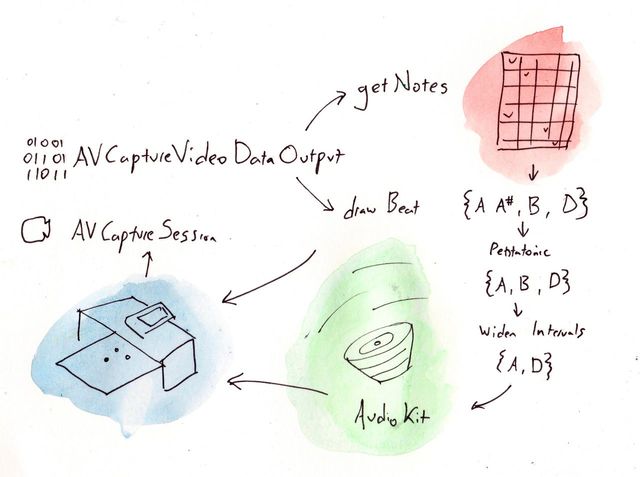 getNotes
01001
01101
11011
AVCaptureVideoDataOutput
{A A#, B, D}
drawBeat
AVCaptureSession
Pentatonic
{A, B, D}
Widen Intervals
{A, D}
AudioKit